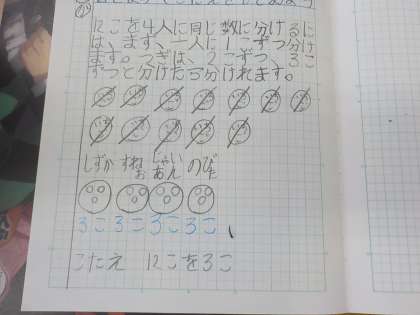 12こを4人に同じ数に分けるに
は、まず、一人に1こずつ分け
ます。つぎは、2こずつ、3こ
ずつと分けたら分けれます。
しずか すねお じゃいあん のびた
3こ 3こ 3こ 3こ
こたえ 12こを3こ